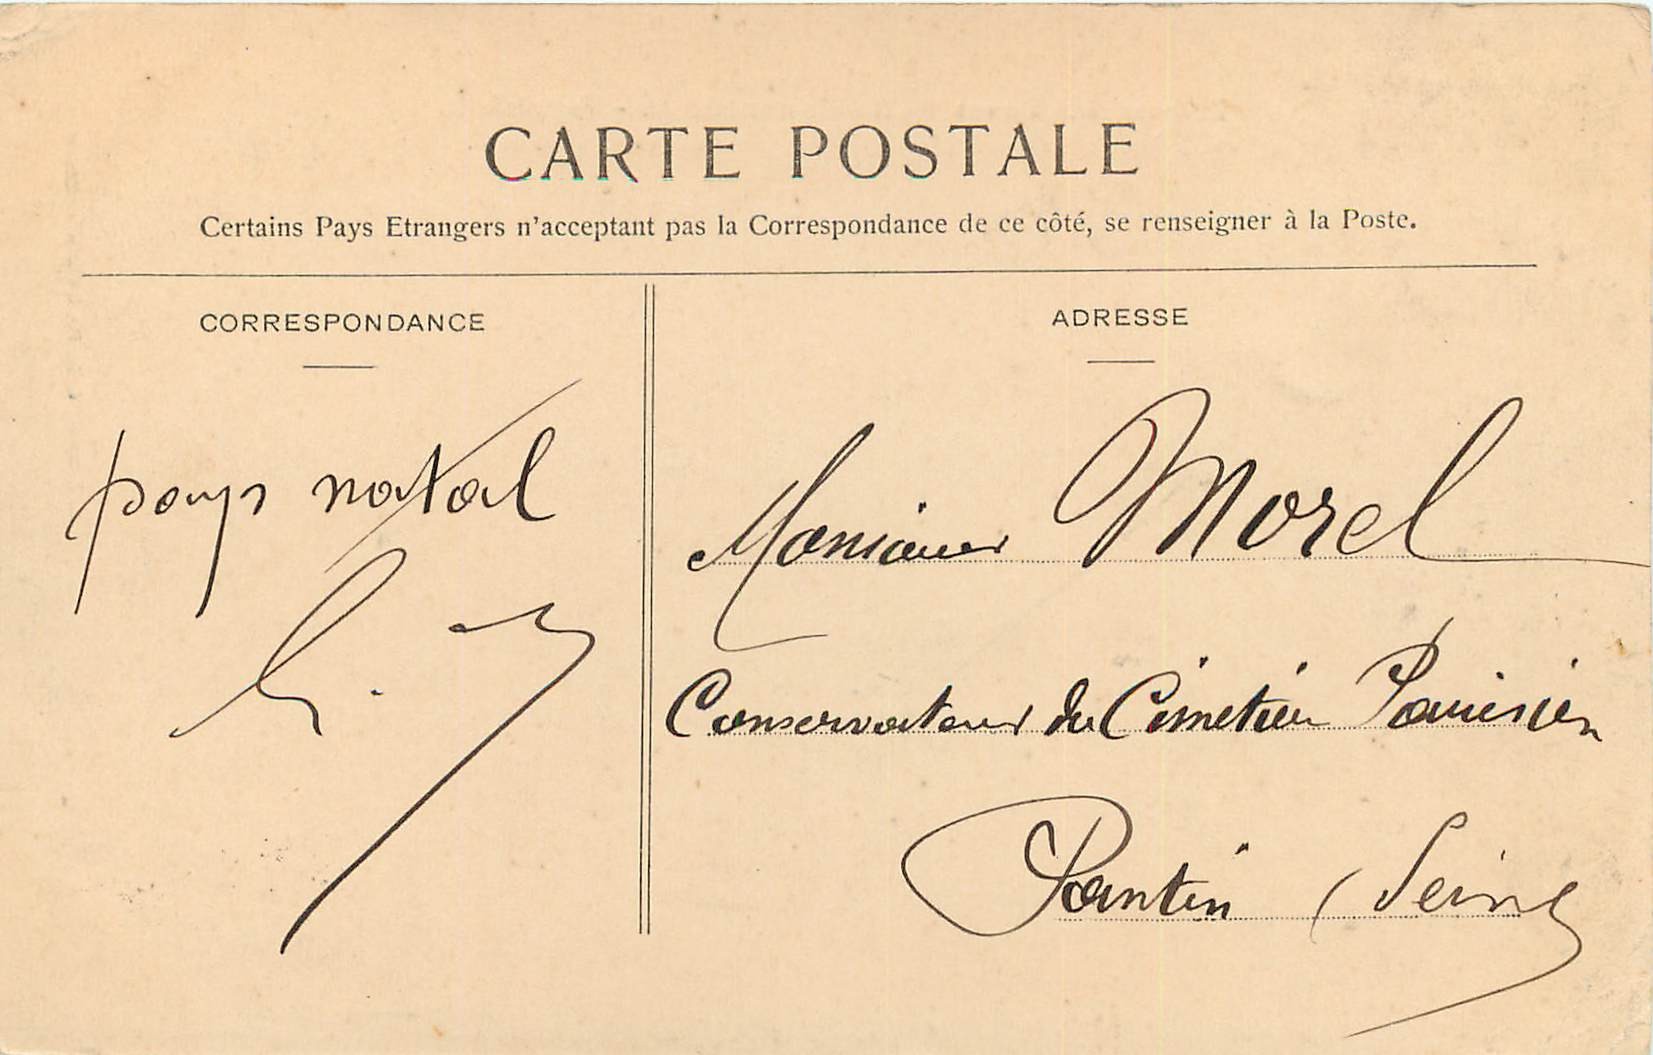 CARTE POSTALE
Certains Pays Etrangers n'acceptant pas la Correspondance de ce côté, se renseigner à la Poste.
CORRESPONDANCE
pays natal
ADRESSE
Monsieur Morel
Conservateur du Cimetière Parisien
Pantin (Seine